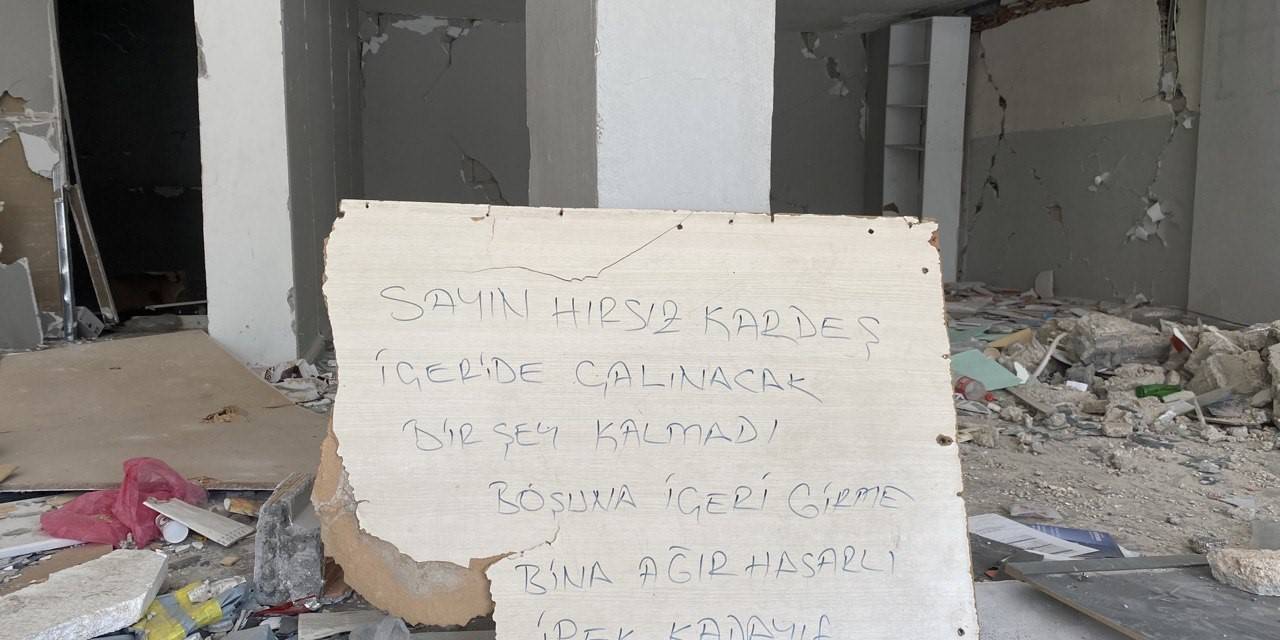 SAYIN HIRSIZ KARDEŞ
İÇERİDE ÇALINACAK
BİR ŞEY KALMADI
BOŞUNA İÇERİ GİRME
BİNA AĞIR HASARLI
İPEK KADAYIF